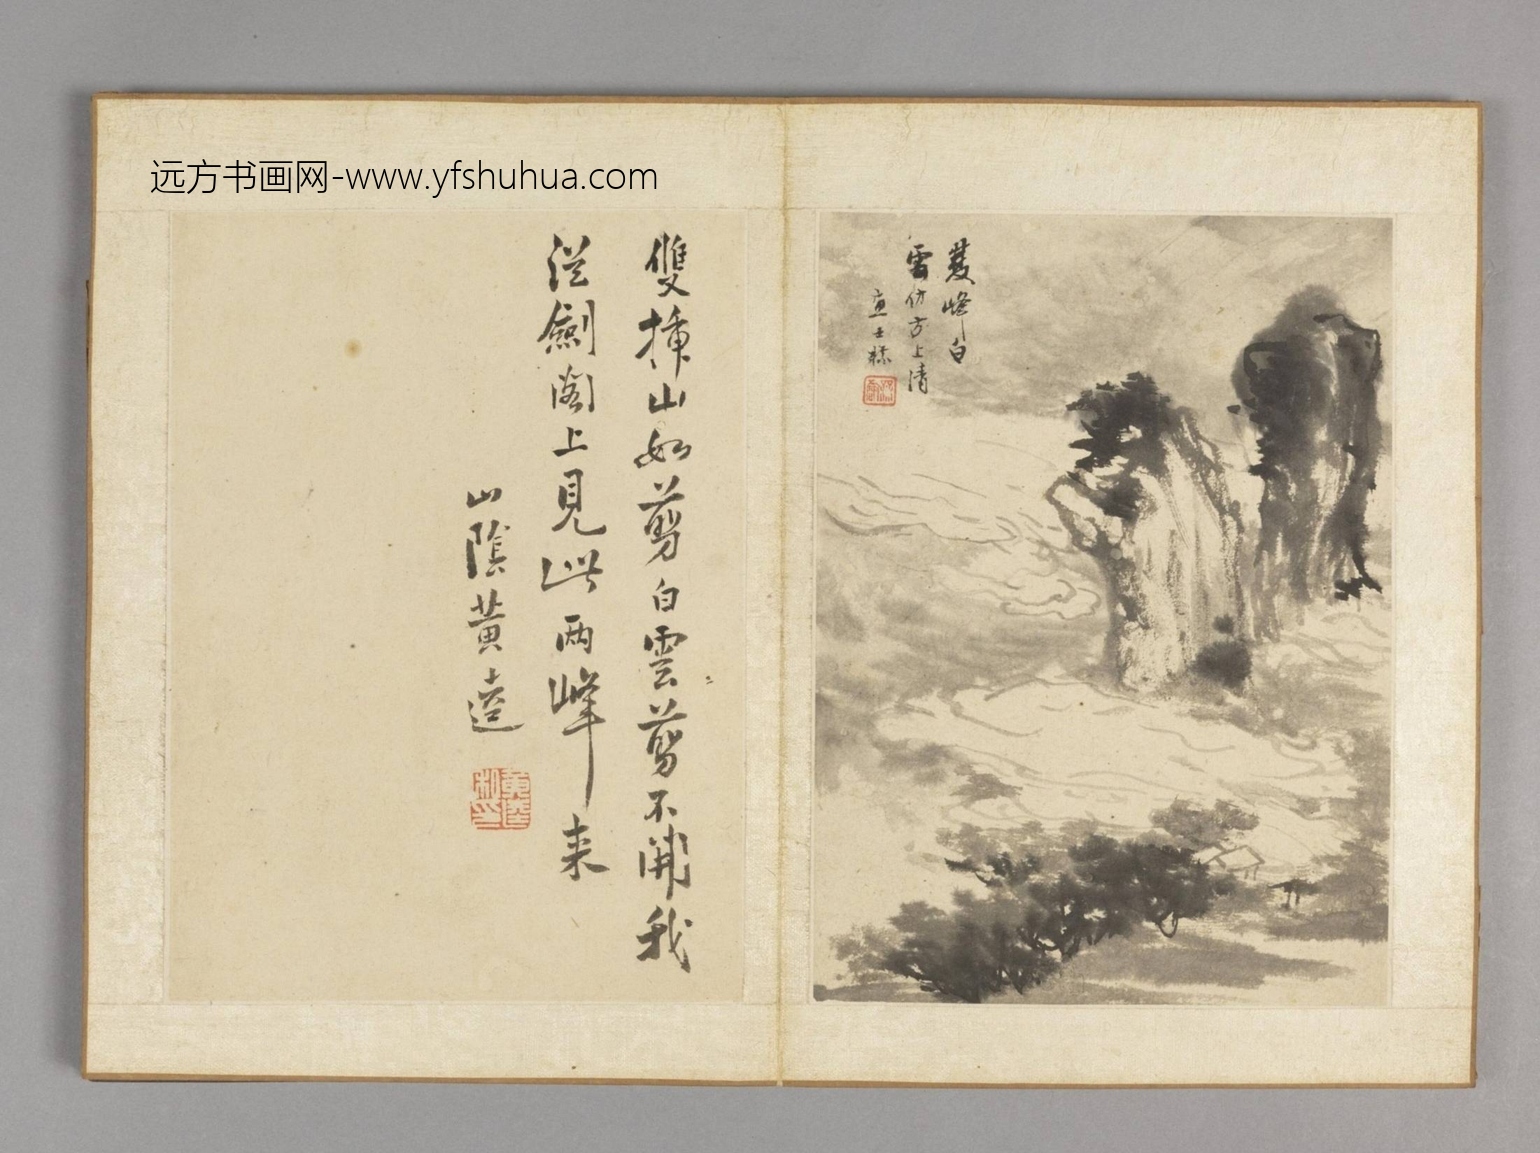 远方书画网-www.yfshuhua.com
雙峰白
雲仿方上清
查士標
雙揷山如剪白雲剪不開我
從劍閣上見此兩峰来
山陰黃逵
黃逵私印